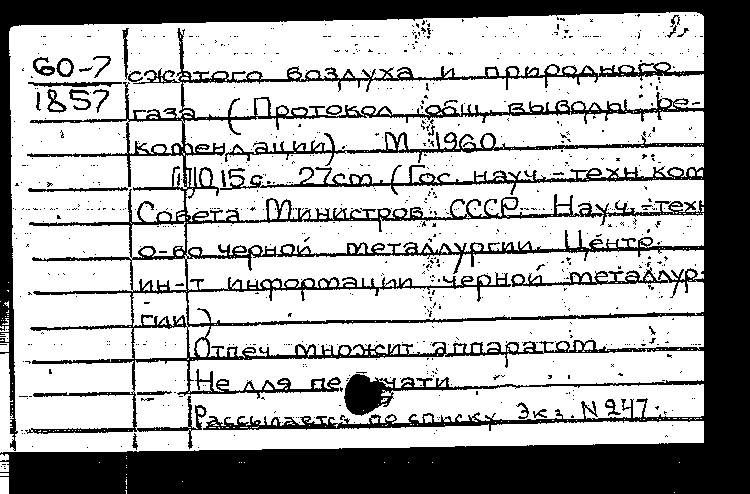 2.
60-7 сжатого воздуха и природного
1857 газа (Протокол, общ. выводы, ре-
комендации). М, 1960.
15 с. 27cm. (Гос. науч.-техн ком
Совета Министров СССР. Науч.-техн
о-во черной металлургии. Центр.
ин-т информации черной металлур-
гии).
Отпеч. множит. аппаратом.
Не для печати
Рассылается по списку Экз. N 247.